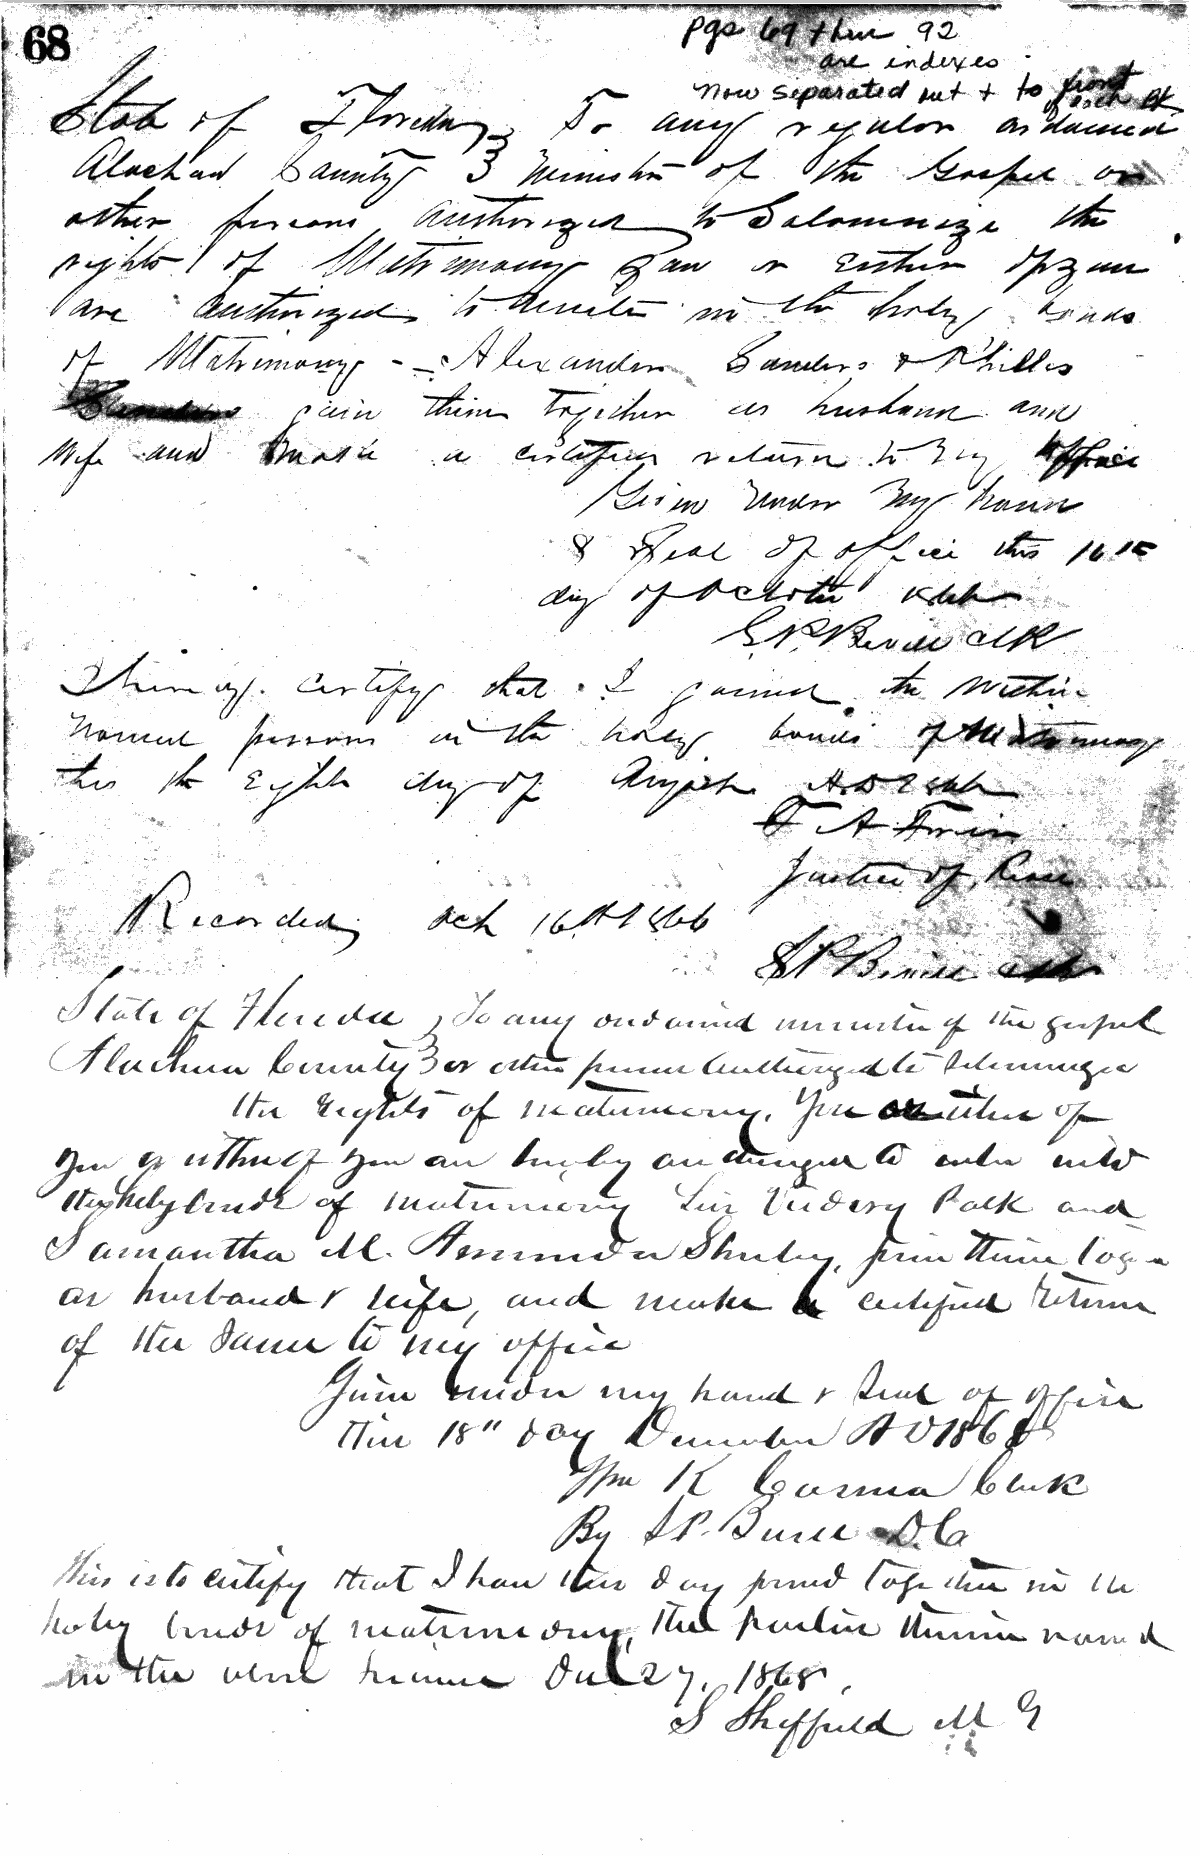 68
pgs 69 thru 92
are indexes
now separated out + to front
of each bk
State of Florida } To any regular ordained
Alachua County } Minister of the Gospel or
other persons authorized to Solemnize the
rights of Matrimony You or Either of you
are authorized to Unite in the holy bonds
of Matrimony - Alexander Sanders & Phillis
join them together as husband and
wife and make a certified return to my office
Given under My hand
& Seal of office this 16th
day of October 1866
S.P. Bevill Clk
I hereby certify that I joined the within
named persons in the holy bonds of Matrimony
this the Eighth day of August AD 1866
F A
Justice of Peace
Recorded Oct 16th 1866
S P Bevill Clk
State of Florida } To any ordained minister of the gospel
Alachua County } or other person authorized to Solemnize
the Rights of matrimony. You or either of
you or either of you are hereby authorized to unite into
the holy bonds of matrimony Polk and
Samantha M. join them together
as husband & wife, and make a certified return
of the same to my office
Given under my hand & Seal of office
this 18" day December AD 1868
Wm K Cessna Clerk
By S P. Bevill D.C.
This is to certify that I have this day joined together in the
holy bonds of matrimony, the parties therein named
in the above license Dec 27, 1868.
S Sheffield M G